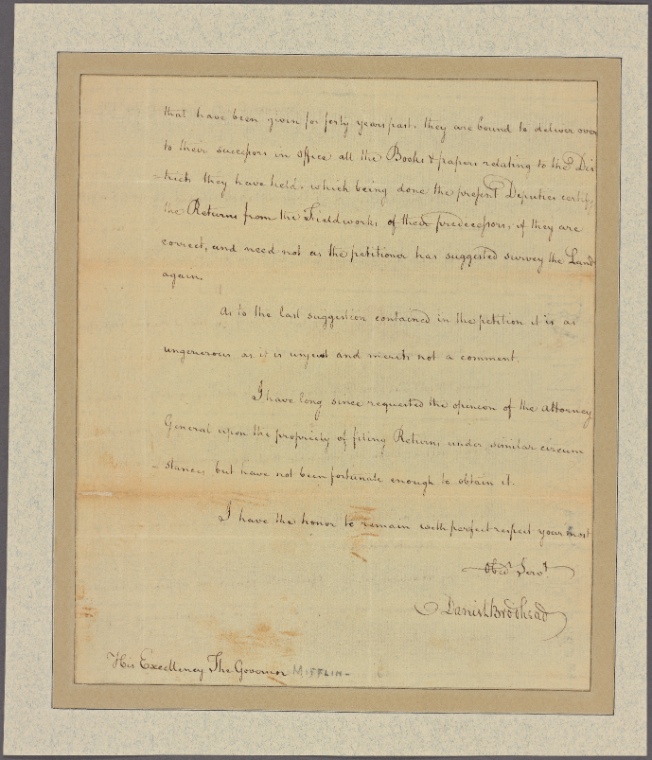 that have been given for forty years past. they are bound to deliver over
to their successors in office all the Books & papers relating to the Dis
=trict they have held, which being done the present Deputies certify
the Returns from the Fieldworks of their predecessors, if they are
correct, and need not as the petitioner has suggested survey the Land
again.
As to the last suggestion contained in the petition it is as
ungenerous as it is unjust and merits not a comment.
I have long since requested the opinion of the Attorney
General upon the propriety of filing Returns under similar circum
=stances but have not been fortunate enough to obtain it.
I have the honor to remain with perfect respect your most
Obed.t Serv.t
Daniel Brodhead
His Excellency The Governor MIFFLIN-